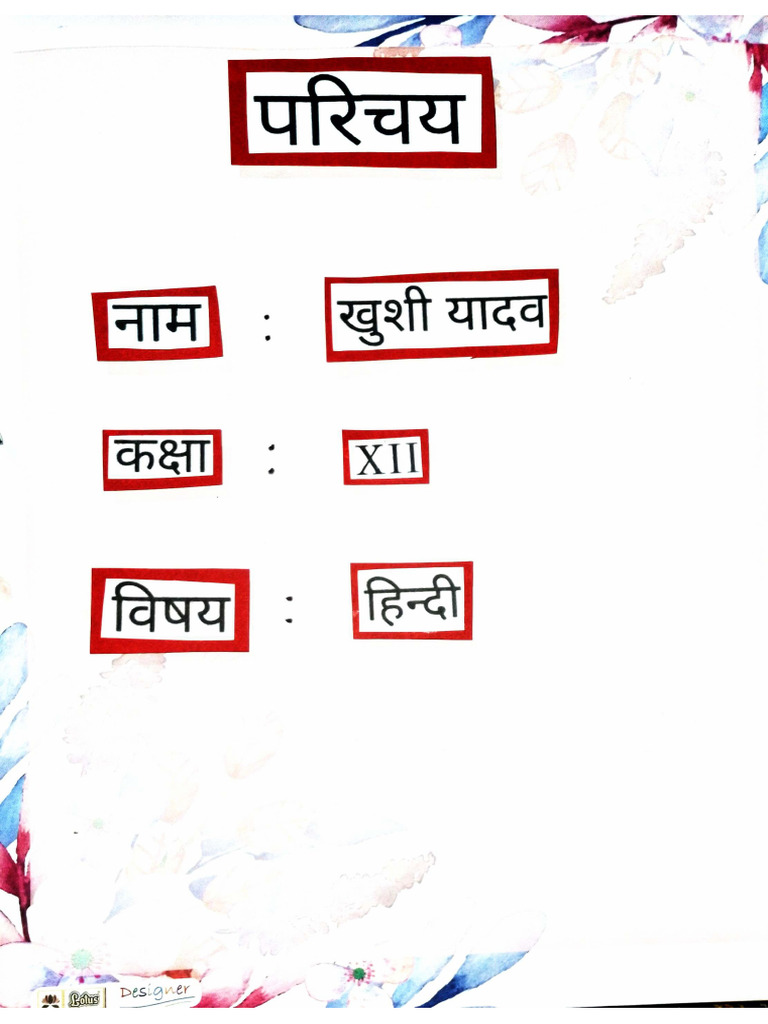 परिचय
नाम : खुशी यादव
कक्षा : XII
विषय : हिन्दी
Lotus Designer